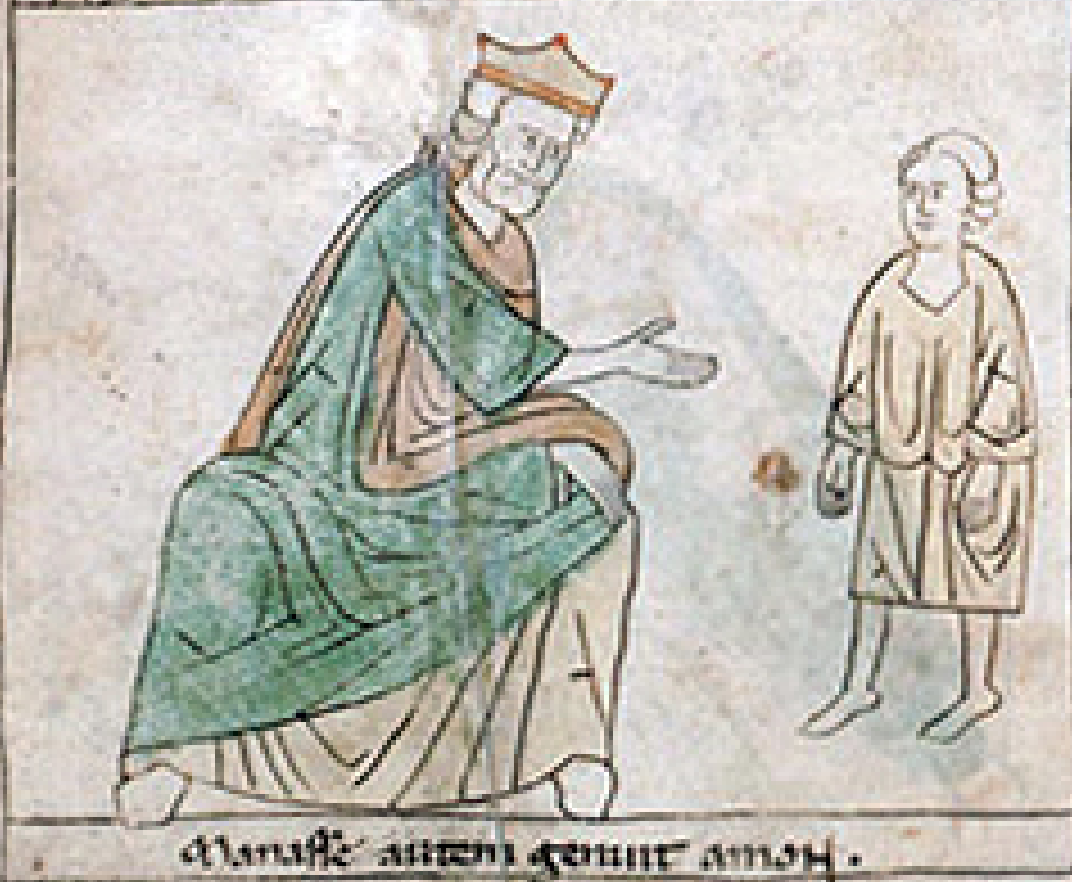 Manasse autem genuit amon.